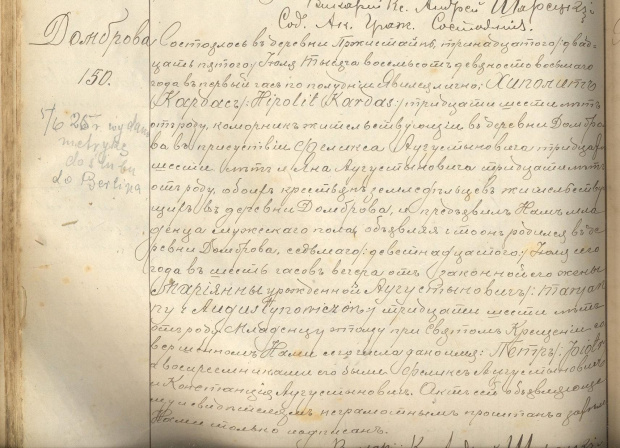 Викарій Кс. Андрей
Сод. Ак. Граж. Состоянія.
Домброва
150.
5/6 25 r wydano
metrykę
do ślubu
do Berlina
Состоялось въ деревни Пржистайнѣ, тринадцатого /: двад-
цать пятого :/ Іюля тысяча восемьсотъ девяносто восьмаго
года въ первый часъ по полудни. Явился лично, Хиполитъ
Кардасъ /: Hipolit Kardas :/ тридцати шести лѣтъ
отъ роду, коморникъ жительствующій въ деревни Домбро-
ва въ присутствіи Феликса Аугустыновича тридцати
шести лѣтъ и Яна Аугустыновича тридцати лѣтъ
отъ роду, обоихъ крестьянъ земледѣльцевъ жительству-
ющихъ въ деревни Домброва, и предъявилъ Намъ мла-
денца мужескаго пола, объявляя что онъ родился въ де-
ревни Домброва, седьмаго /: девятнадцатого :/ Іюля сего
года въ шесть часовъ вечера отъ законной его жены
Маріянны урожденной Аугустыновичъ /: Maryan-
ny z Augustynowiczów :/ тридцати шести лѣтъ
отъ роду. Младенцу этому при Святомъ Крещеніи со-
вершенномъ Нами сего числа дано имя: Петръ /: Piotr :/
а воспріемниками его были Феликсъ Аугустыновичъ
и Констанція Аугустыновичъ. Актъ сей объявляюще-
му и свидѣтелямъ неграмотнымъ прочитанъ а затѣмъ
Нами только подписанъ.